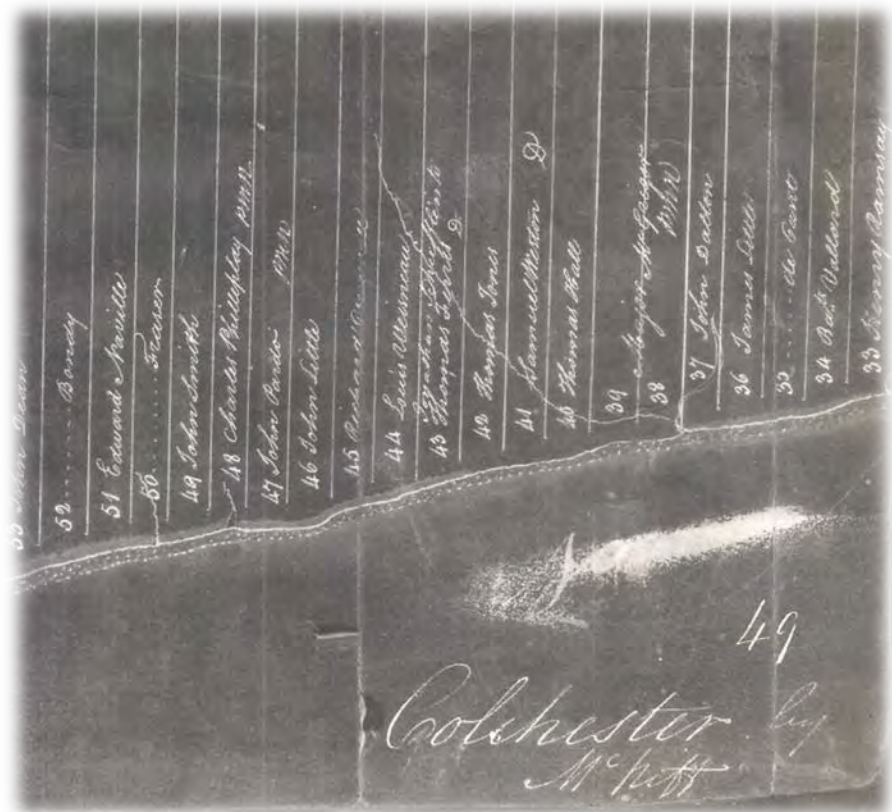 53 John Dean
52 ...... Bondy
51 Edward Naville
50 ........ Fraser
49 John Smith
48 Charles Phillplay
47 John Pardo
46 John Little
45 Richard
44 Luis
43 Thomas D
42 Thomas Jones
41 Samuel Weston D
40 Thomas Hall
39 Major
38
37 John Dalton
36 James
35 ....... de
34 Bat. Vallard
33 Henry Ramsay
49
Colchester by
McNiff